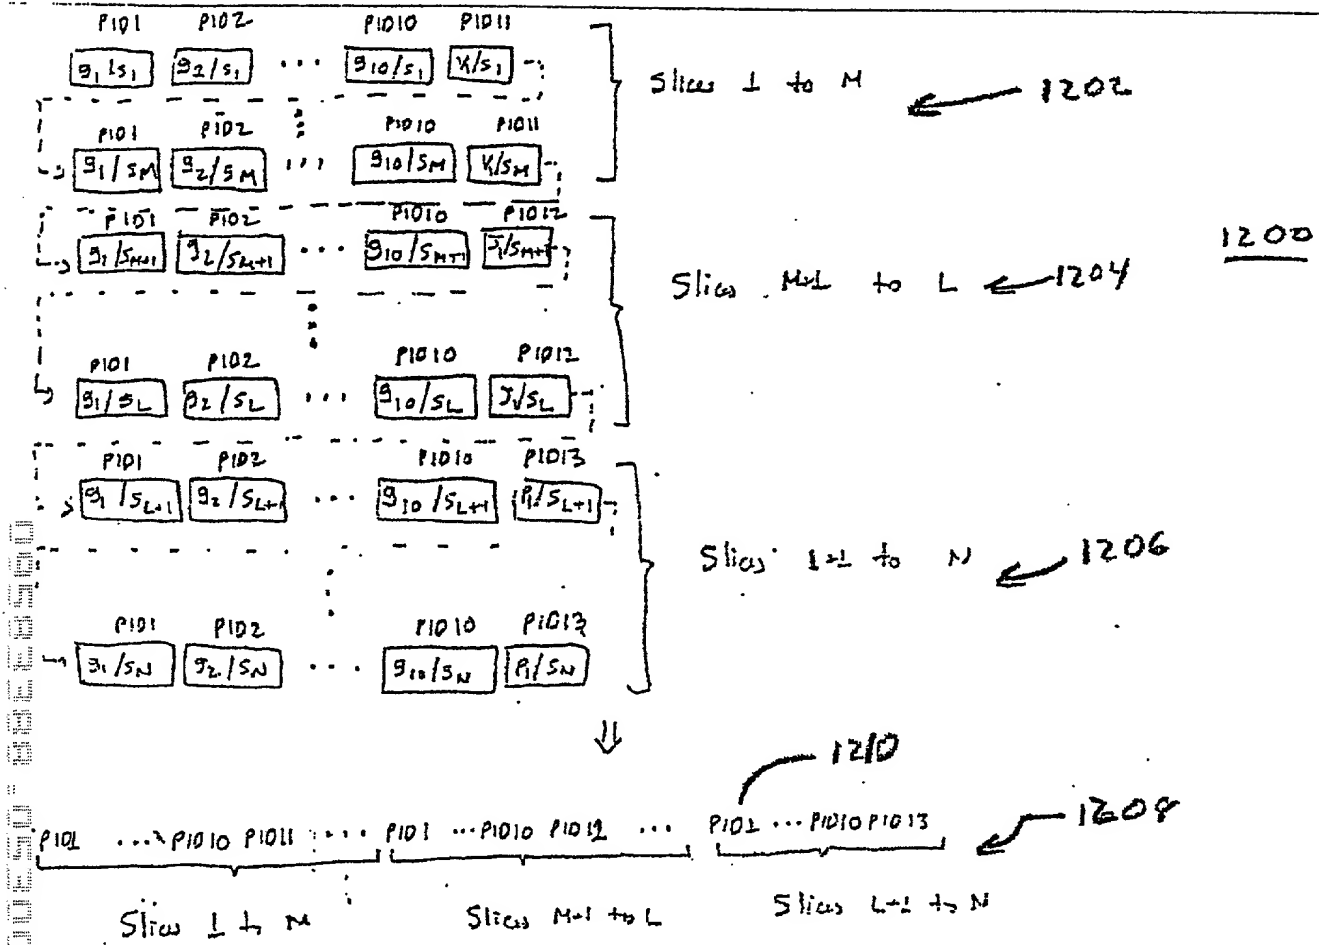 PID1 PID2 PID10 PID11
g1/s1 g2/s1 ... g10/s1 V1/s1
Slices 1 to M 1202
PID1 PID2 PID10 PID11
g1/sM g2/sM ... g10/sM V1/sM
PID1 PID2 PID10 PID12
g1/sM+1 g2/sM+1 ... g10/sM+1 /sM+1
1200
Slices M+1 to L 1204
PID1 PID2 PID10 PID12
g1/sL g2/sL ... g10/sL /sL
PID1 PID2 PID10 PID13
g1/sL+1 g2/sL+1 ... g10/sL+1 P1/sL+1
Slices L+1 to N 1206
PID1 PID2 PID10 PID13
g1/sN g2/sN ... g10/sN P1/sN
⇓
1210
1208
PID1 ... PID10 PID11 ... PID1 ... PID10 PID12 ... PID1 ... PID10 PID13
Slices 1 to M Slices M+1 to L Slices L+1 to N